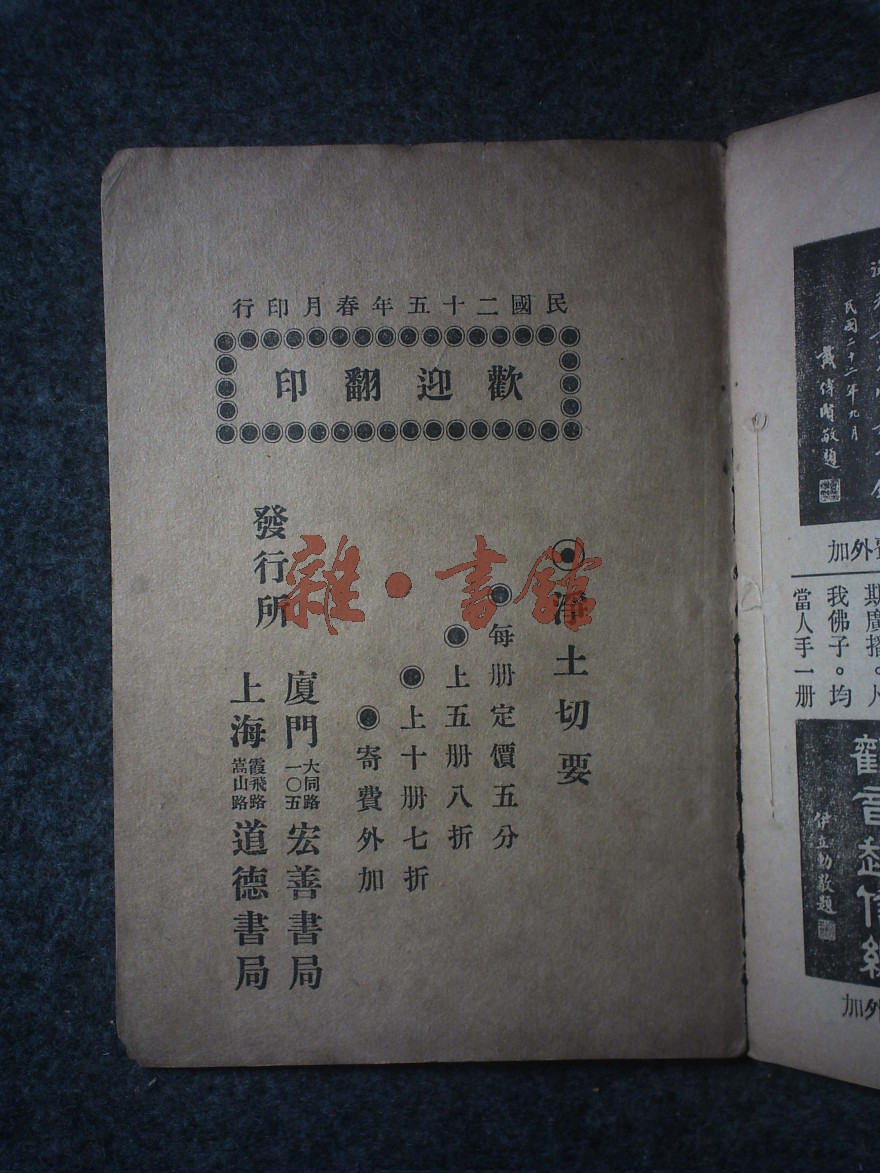 民國二十五年春月印行
歡迎翻印
◉淨土切要
◉每册定價五分
◉上五册八折
◉上十册七折
◉寄費外加
發行所
廈門大同路一〇五宏善書局
上海霞飛路嵩山路道德書局
雜·書館
民國二十三年九月
戴傳賢敬題
費外加
期廣播。凡
我佛子。均
當人手一册
觀音懿修
伊立勛敬題
外加